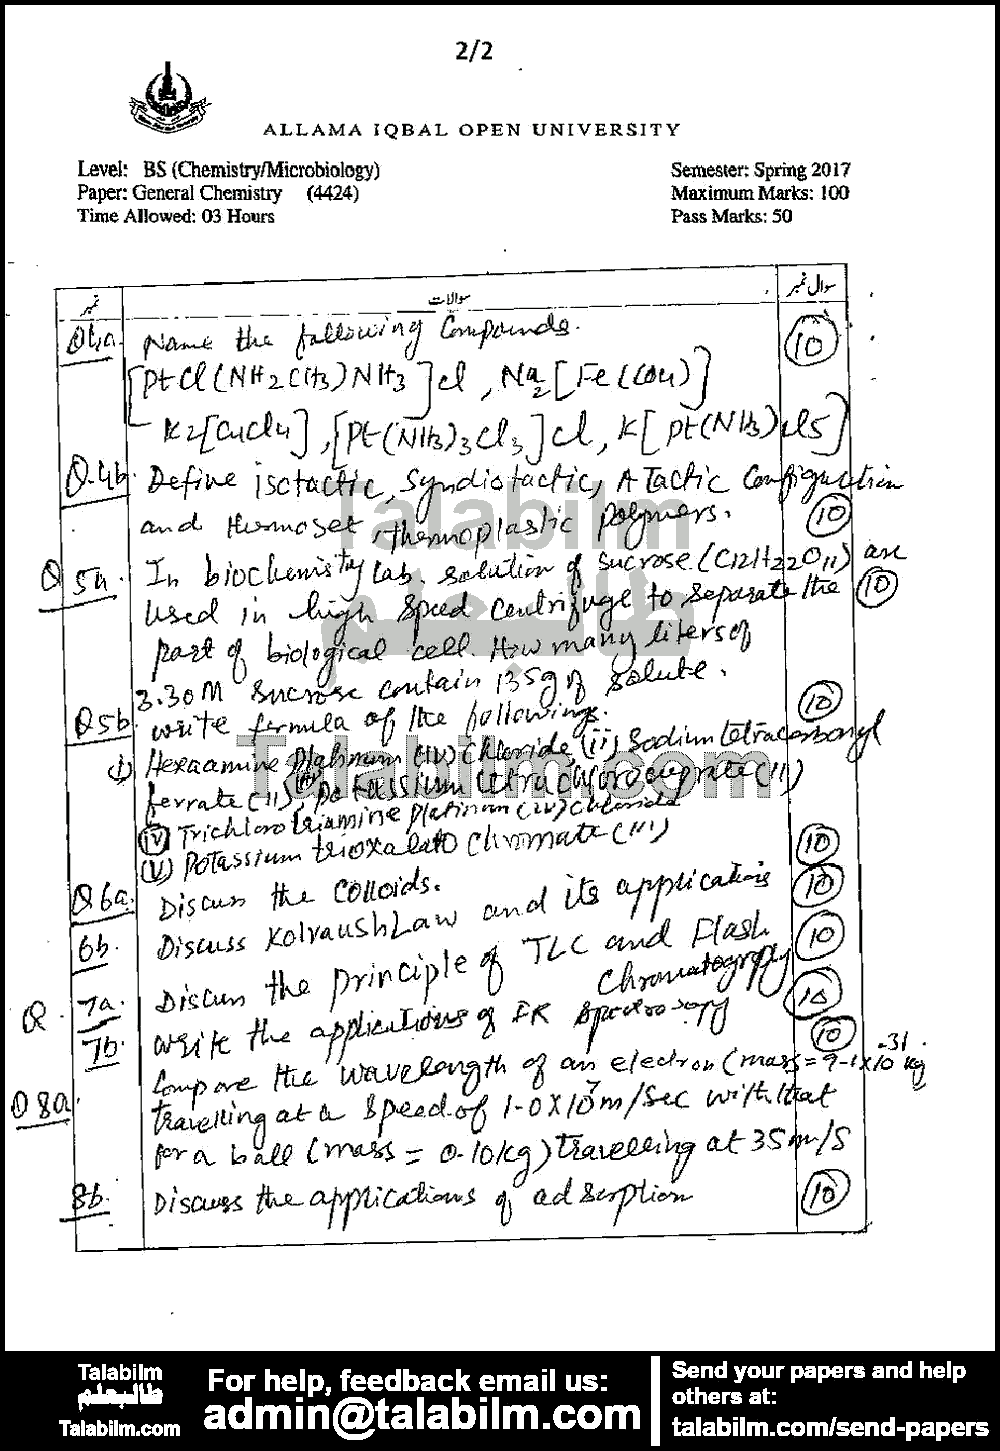 2/2
ALLAMA IQBAL OPEN UNIVERSITY
Level: BS (Chemistry/Microbiology)
Semester: Spring 2017
Paper: General Chemistry (4424)
Maximum Marks: 100
Time Allowed: 03 Hours
Pass Marks: 50
نمبر سوالات سوال نمبر
Q4a Name the following Compounds. 10
[PtCl(NH2CH3)NH3]Cl, Na2[Fe(CO4)]
K2[CuCl4], [Pt(NH3)3Cl3]Cl, K[Pt(NH3)Cl5]
Q.4b Define isotactic, Syndiotactic, A Tactic Configuration
and thermoset, thermoplastic polymers. 10
Q 5a. In biochemistry lab. solution of sucrose (C12H22O11) are
used in high speed centrifuge to separate the 10
part of biological cell. How many liters of
3.30M sucrose contain 135g of solute.
Q5b. write formula of the followings. 10
i) Hexaamine Platinum (IV) Chloride, (ii) Sodium tetracarbonyl
ferrate (II), (iii) potassium tetrachlorocuprate (II)
(iv) Trichloro triamine platinum (IV) chloride
(V) Potassium trioxalato Chromate (III)
Q6a. Discuss the Colloids. 10
6b. Discuss Kolraush Law and its applications 10
Q. 7a. Discuss the principle of TLC and Flash 10
Chromatography
7b. Write the applications of IR spectroscopy 10
Q8a. Compare the wavelength of an electron (mass = 9.1x10-31 kg 10
travelling at a speed of 1.0x10^7 m/sec with that
for a ball (mass = 0.10kg) travelling at 35m/s
8b. Discuss the applications of adsorption 10
Talabilm
طالبعلم
Talabilm.com
Talabilm
طالبعلم
Talabilm.com
For help, feedback email us:
admin@talabilm.com
Send your papers and help
others at:
talabilm.com/send-papers